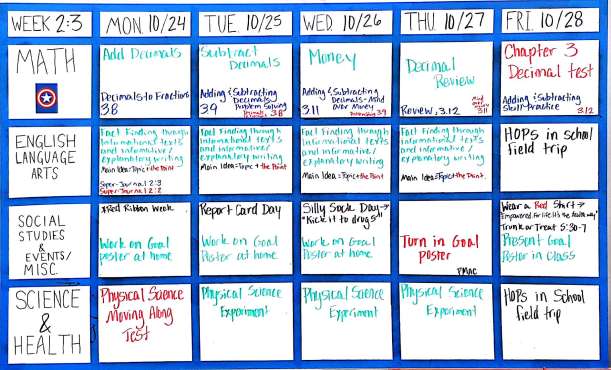 WEEK 2:3
MON. 10/24
TUE. 10/25
WED. 10/26
THU. 10/27
FRI. 10/28
MATH
Add Decimals
Decimals to Fractions
3.8
Subtract
Decimals
Adding & Subtracting
Decimals
Problem Solving
3.9
3.8
Money
Adding & Subtracting
Decimals-Add
over Money
3.11
3.9
Decimal
Review
Review, 3.12
3.11
Chapter 3
Decimal test
Adding & Subtracting
Skill Practice
3.12
ENGLISH
LANGUAGE
ARTS
Fact Finding through
Informational texts
and informative/
explanatory writing
Main Idea=Topic+the Point.
Super-Journal 2:3
Super-Journal 2:2
Fact Finding through
Informational texts
and informative/
explanatory writing
Main Idea=Topic+the Point.
Fact Finding through
Informational texts
and informative/
explanatory writing
Main Idea=Topic+the Point.
Fact Finding through
Informational texts
and informative/
explanatory writing
Main Idea=Topic+the Point.
HOPS in school
field trip
SOCIAL
STUDIES
&
EVENTS/
MISC.
*Red Ribbon Week
Work on Goal
poster at home
Report Card Day
Work on Goal
Poster at home
Silly Sock Day→
"Kick it to drugs!"
Work on Goal
Poster at home
Turn in Goal
poster
PMAC
Wear a Red Shirt→
Trunk or Treat 5:30-7
Present Goal
Poster in Class
SCIENCE
&
HEALTH
Physical Science
Moving Along
Test
Physical Science
Experiment
Physical Science
Experiment
Physical Science
Experiment
HOPS in School
field trip